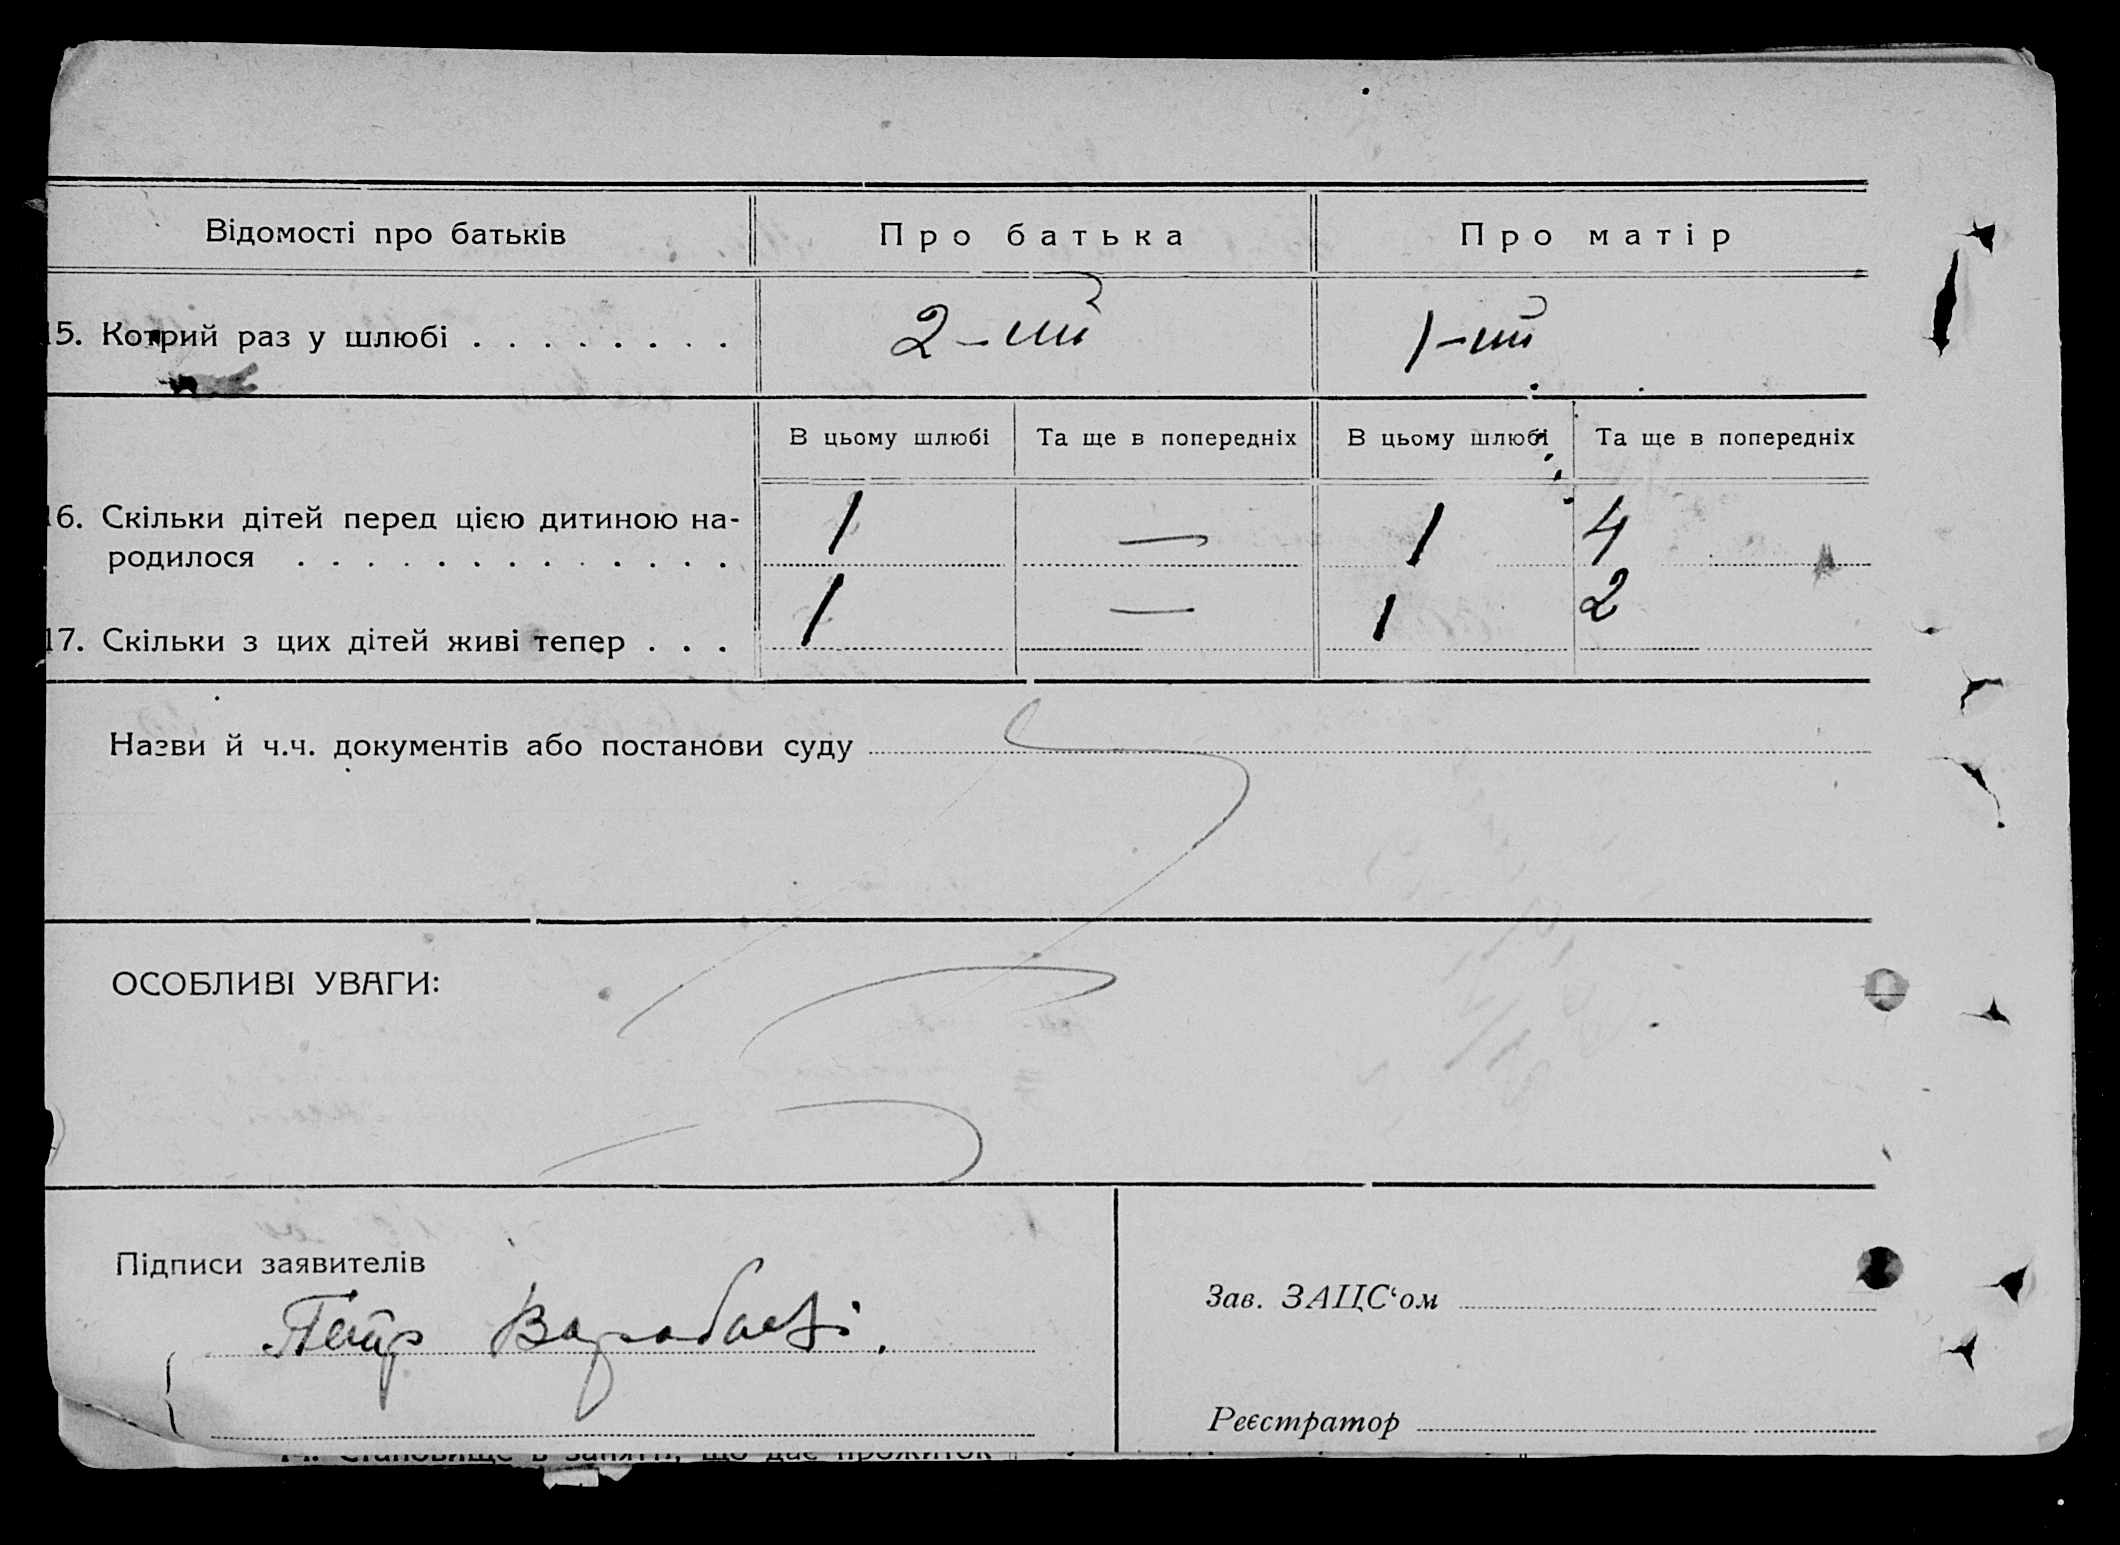 Відомості про батьків Про батька Про матір
15. Котрий раз у шлюбі . . . . . . . . 2-ий 1-ий
В цьому шлюбі Та ще в попередніх В цьому шлюбі Та ще в попередніх
16. Скільки дітей перед цією дитиною на-
родилося . . . . . . . . . . . . . 1 — 1 4
17. Скільки з цих дітей живі тепер . . . 1 — 1 2
Назви й ч.ч. документів або постанови суду
ОСОБЛИВІ УВАГИ:
Підписи заявителів
Зав. ЗАЦС‘ом
Петр
Реєстратор
14. Становище в занятті, що дає прожиток